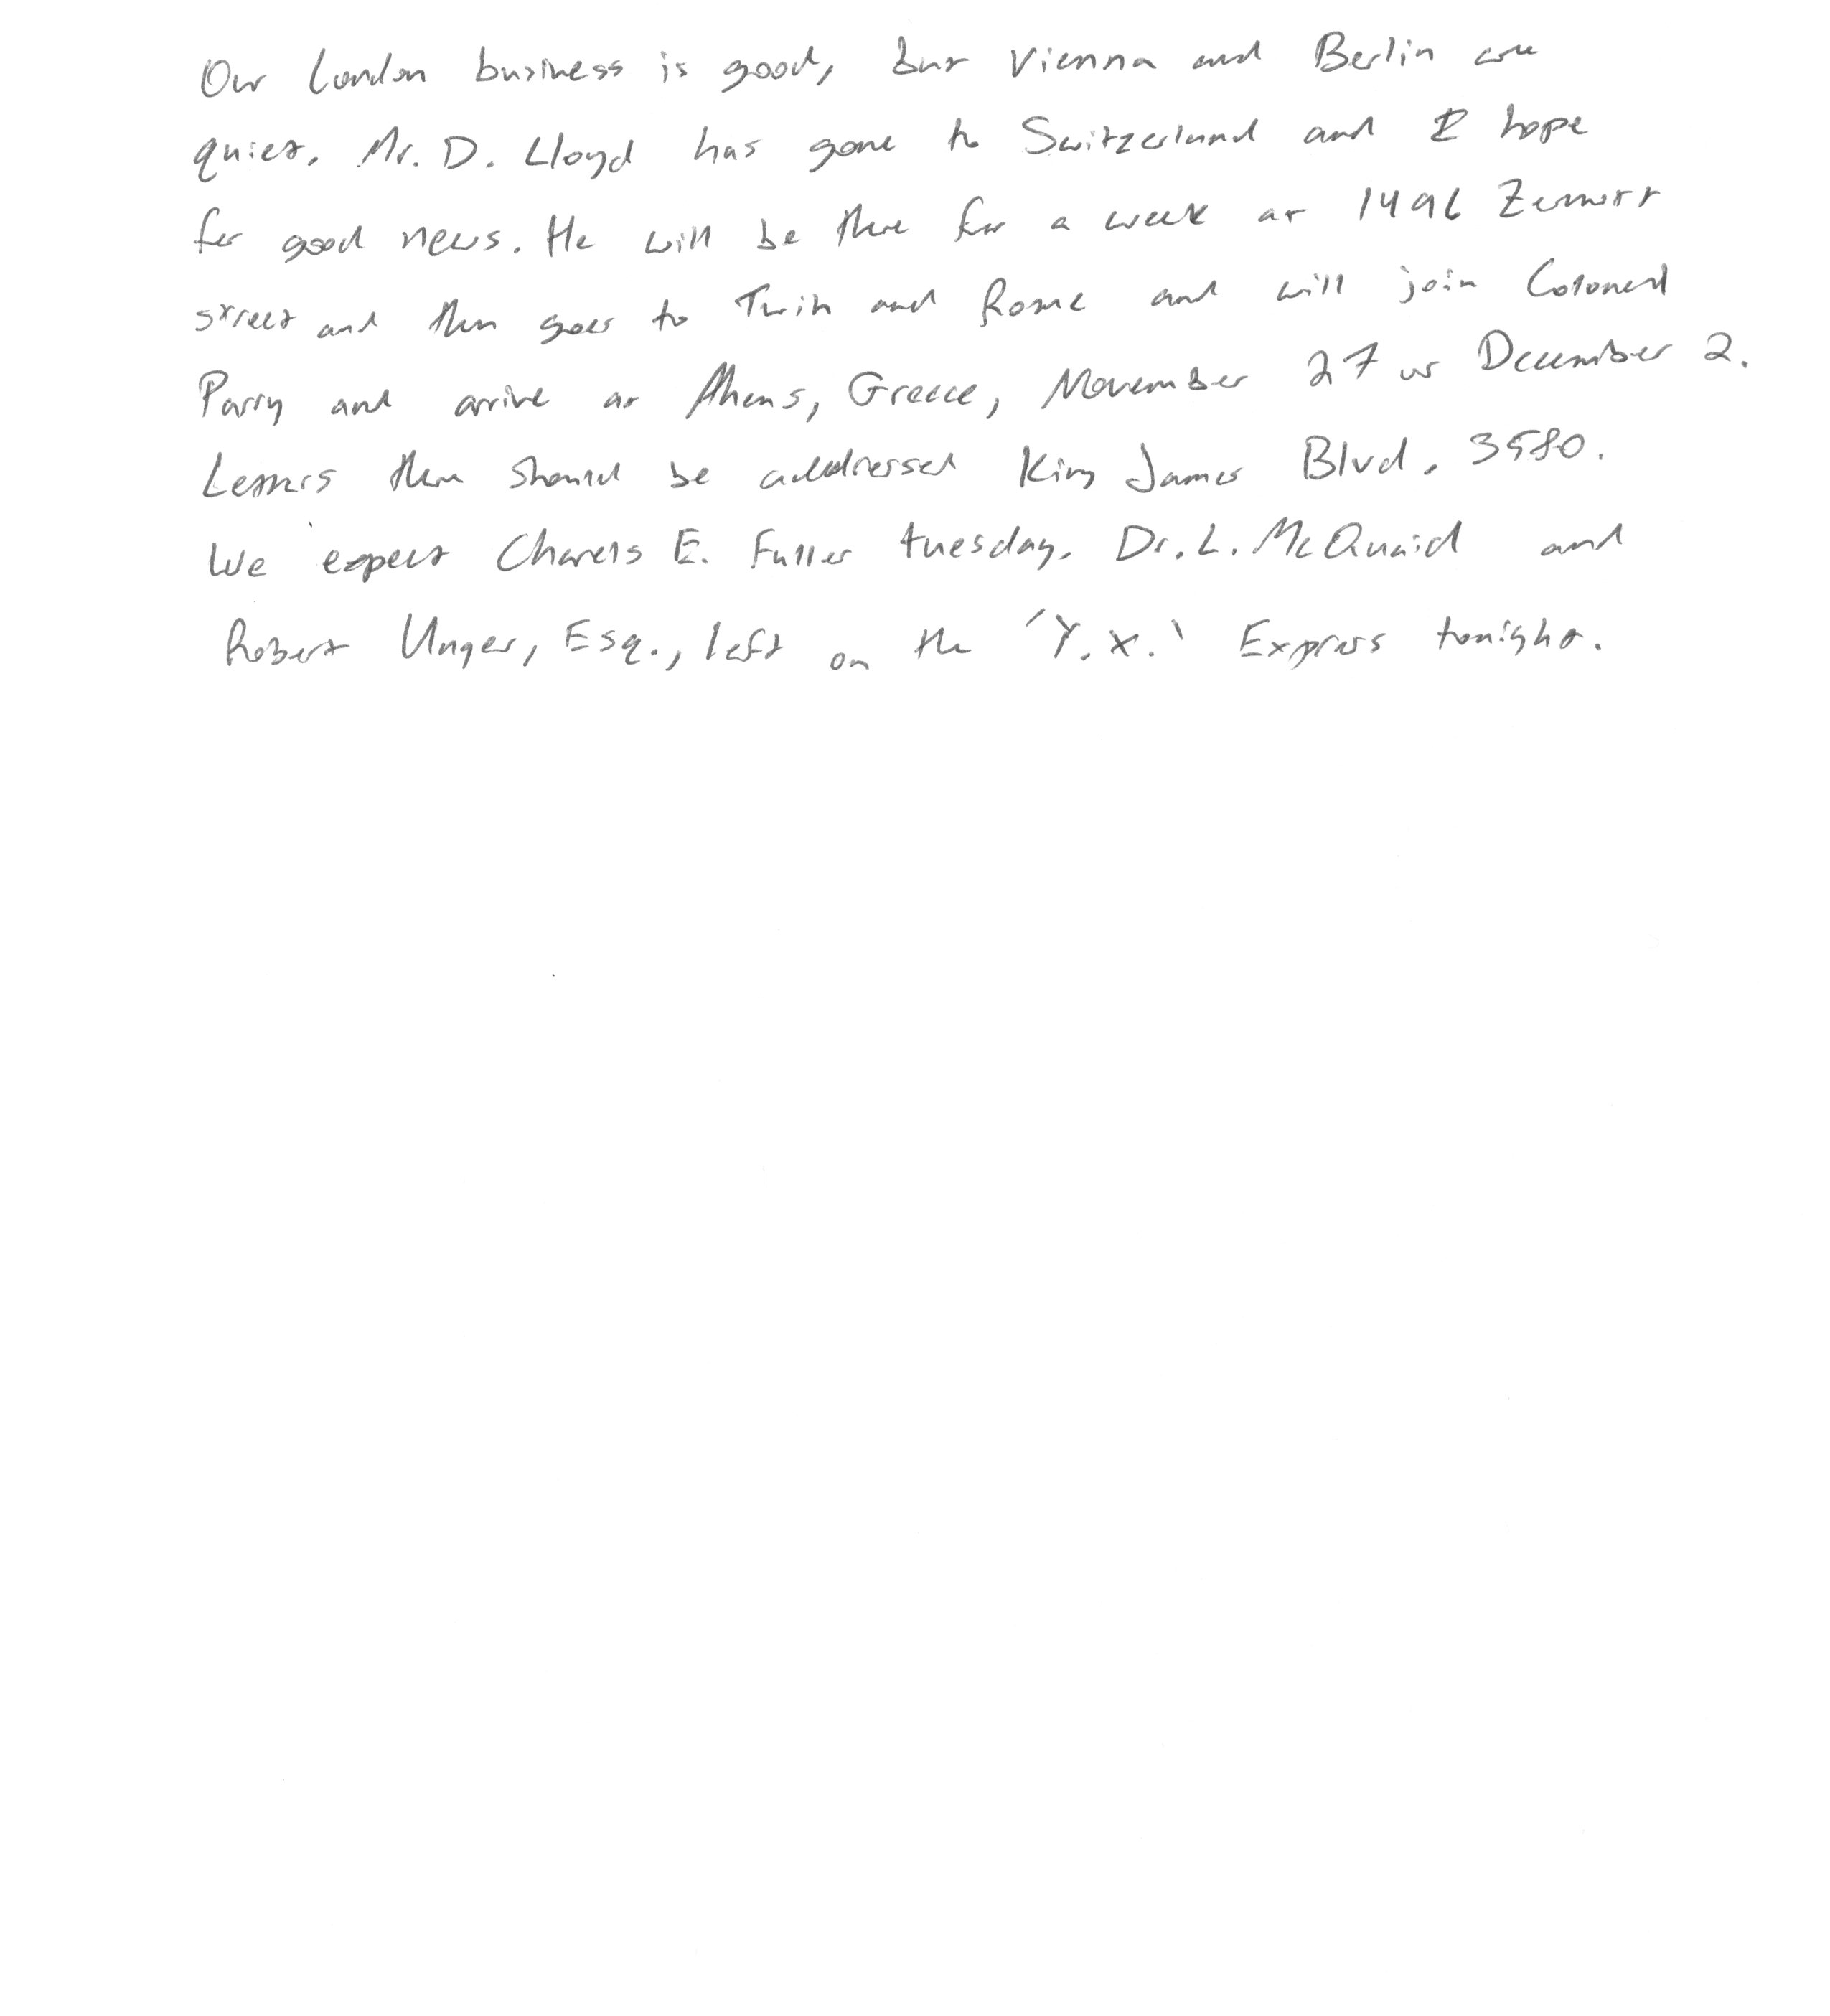 Our London business is good, but Vienna and Berlin are
quiet. Mr. D. Lloyd has gone to Switzerland and I hope
for good news. He will be there for a week at 1496 Zermott
street and then goes to Turin and Rome and will join Colonel
Parry and arrive at Athens, Greece, November 27 or December 2.
Letters there should be addressed King James Blvd. 3580.
We expect Charels E. Fuller tuesday. Dr. L. McQuaid and
Robert Unger, Esq., left on the 'Y.X.' Express tonight.